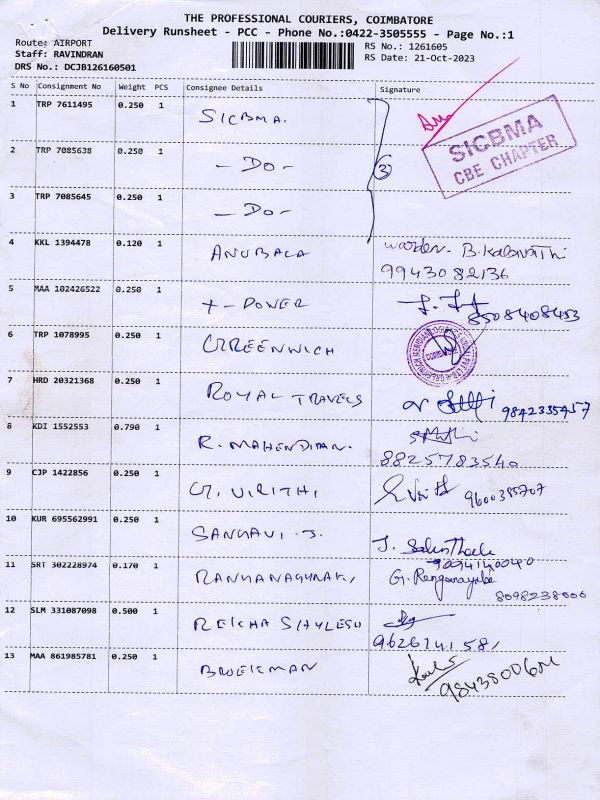 THE PROFESSIONAL COURIERS, COIMBATORE
Delivery Runsheet - PCC - Phone No.:0422-3505555 - Page No.:1
Route: AIRPORT
RS No.: 1261605
Staff: RAVINDRAN
RS Date: 21-Oct-2023
DRS No.: DCJB126160501
S No Consignment No Weight PCS Consignee Details Signature
1 TRP 7611495 0.250 1 SICBMA.
SICBMA
CBE CHAPTER
2 TRP 7085638 0.250 1 - Do - 3
3 TRP 7085645 0.250 1 - Do -
4 KKL 1394478 0.120 1 ANUBALA warden- B.
9943082136
5 MAA 102426522 0.250 1 8508408453
6 TRP 1078995 0.250 1 GREENWICH
7 HRD 20321368 0.250 1 ROYAL TRAVELS 9842335457
8 KDI 1552553 0.790 1 R. MAHENDIRAN.
8825783540
9 CJP 1422856 0.250 1 G. VIRITHI 9600385707
10 KUR 695562991 0.250 1 SANGAVI . J. J.
11 SRT 302228974 0.170 1 G.
8098238006
12 SLM 331087098 0.500 1 REKHA SHYLESH
9626741581
13 MAA 861985781 0.250 1 BROEKMAN